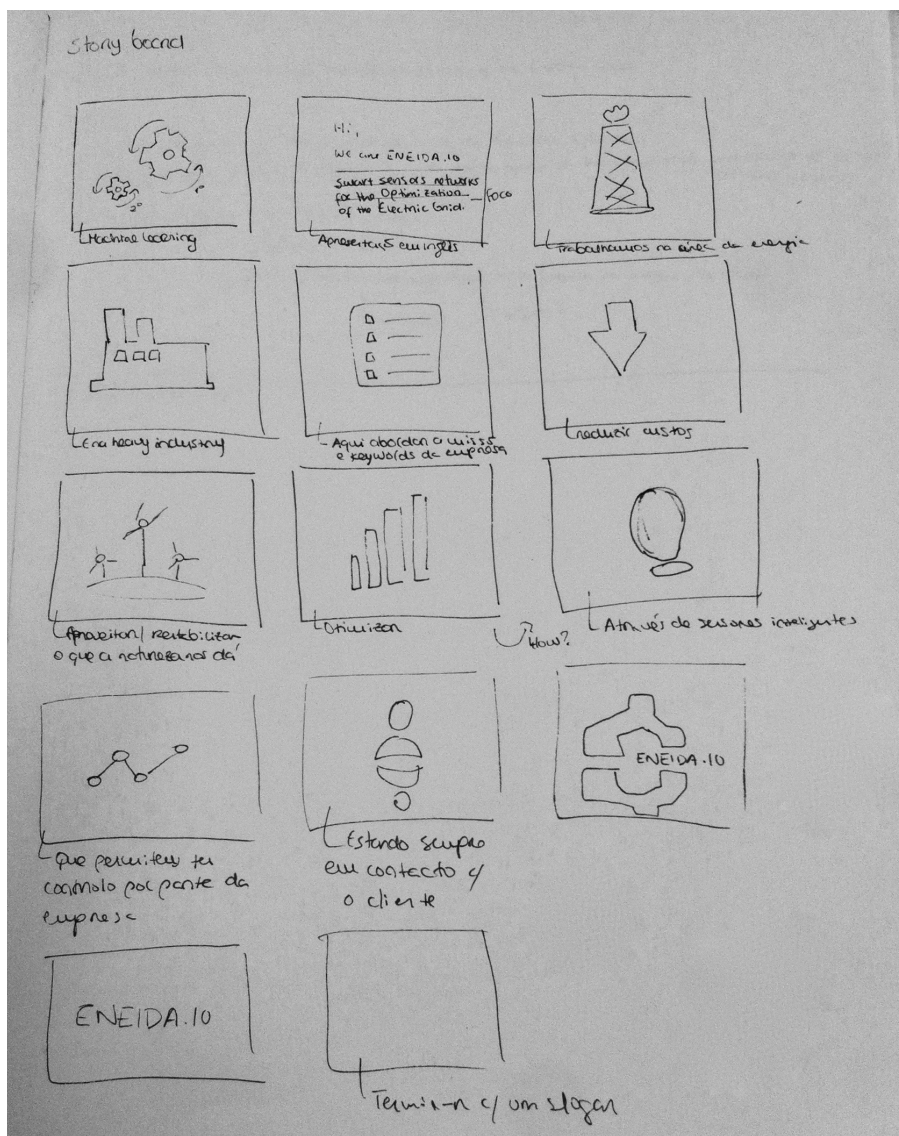 Story board
Machine learning
Hi,
We are ENEIDA.IO
Smart sensors networks
for the Optimization
of the Electric Grid.
Foco
Apresentação em inglês
Trabalhamos na área da energia
Era heavy industry
Aqui abordar a missão
e keywords da empresa
reduzir custos
Aproveitar/ rentabilizar
o que a natureza nos dá
Otimizar
How?
Através de sensores inteligentes
Que permitem ter
controlo por parte da
empresa
Estando sempre
em contacto c/
o cliente
ENEIDA.IO
ENEIDA.IO
Terminar c/ um slogan